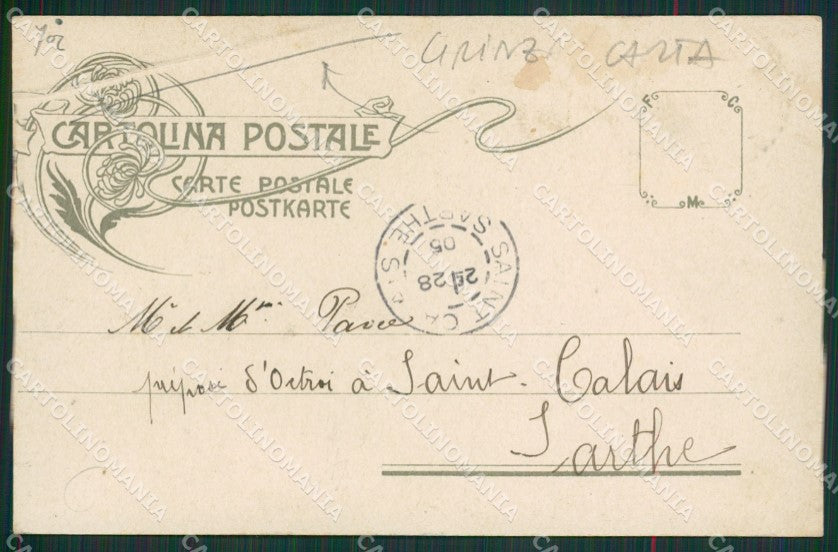 GRINZA CARTA
CARTOLINA POSTALE
CARTE POSTALE
POSTKARTE
F C
M
SAINT CA SARTHE
28
05
Mr et Mme
préposé d'Octroi à Saint-Calais
Sarthe
CARTOLINOMANIA